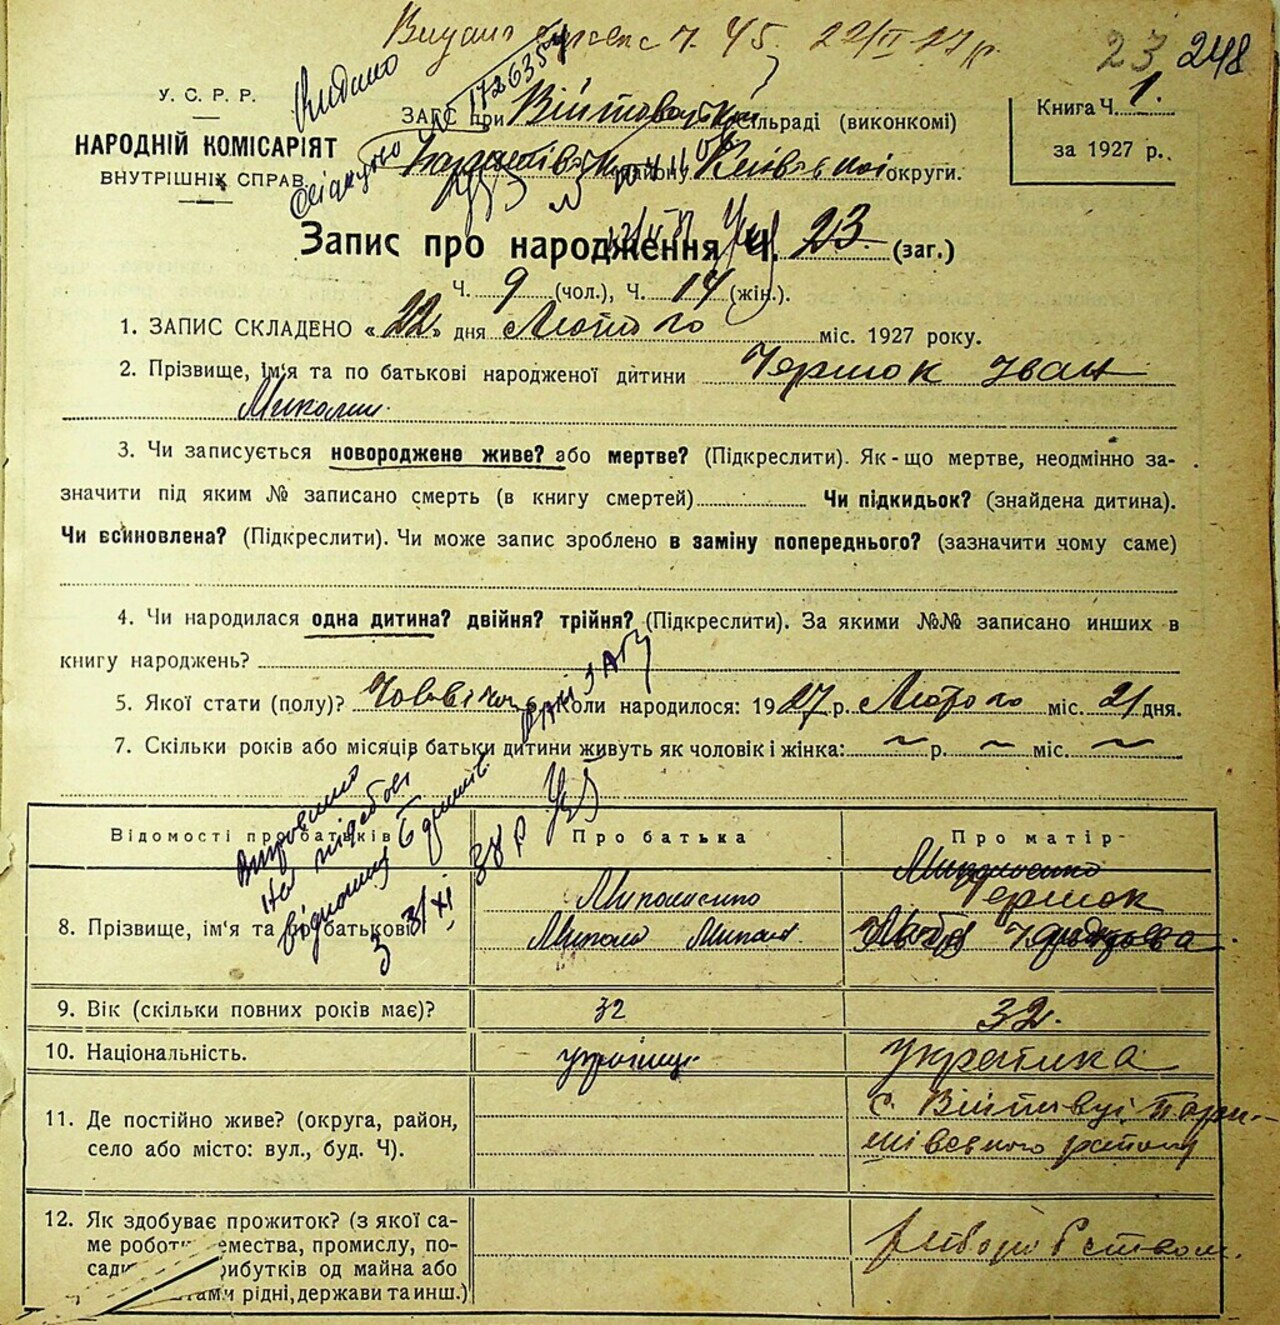 Видано виpис ч. 45. 22/II-27 р.
23 248
У. С. Р. Р.
НАРОДНІЙ КОМІСАРІЯТ
ВНУТРІШНІХ СПРАВ.
Видано
ЗАГС при Війтовецькій сільраді (виконкомі)
району Київської округи.
Книга Ч. 1.
за 1927 р.
Запис про народження Ч. 23 (заг.)
Ч. 9 (чол.), Ч. 14 (жін.).
1. ЗАПИС СКЛАДЕНО «22» дня Лютого міс. 1927 року.
2. Прізвище, ім'я та по батькові народженої дитини Чермок Іван
Микол
3. Чи записується новороджене живе? або мертве? (Підкреслити). Як-що мертве, неодмінно за-
значити під яким № записано смерть (в книгу смертей) Чи підкидьок? (знайдена дитина).
Чи всиновлена? (Підкреслити). Чи може запис зроблено в заміну попереднього? (зазначити чому саме)
4. Чи народилася одна дитина? двійня? трійня? (Підкреслити). За якими №№ записано инших в
книгу народжень?
5. Якої стати (полу)? Чоловічої 6. Коли народилося: 1927 р. Лютого міс. 21 дня.
7. Скільки років або місяців батьки дитини живуть як чоловік і жінка: ~ р. ~ міс. ~
Відомості про батьків
Про батька
Про матір
8. Прізвище, ім'я та по батькові
Миколаенко
Микола Микол.
Миколаенко
Чермок
9. Вік (скільки повних років має)?
32
32.
10. Національність.
українець
українка
11. Де постійно живе? (округа, район,
село або місто: вул., буд. Ч).
с. Війтівці Бари-
шівського району
12. Як здобуває прожиток? (з якої са-
ме роботи, ремества, промислу, по-
сади, прибутків од майна або
рідні, держави та инш.)